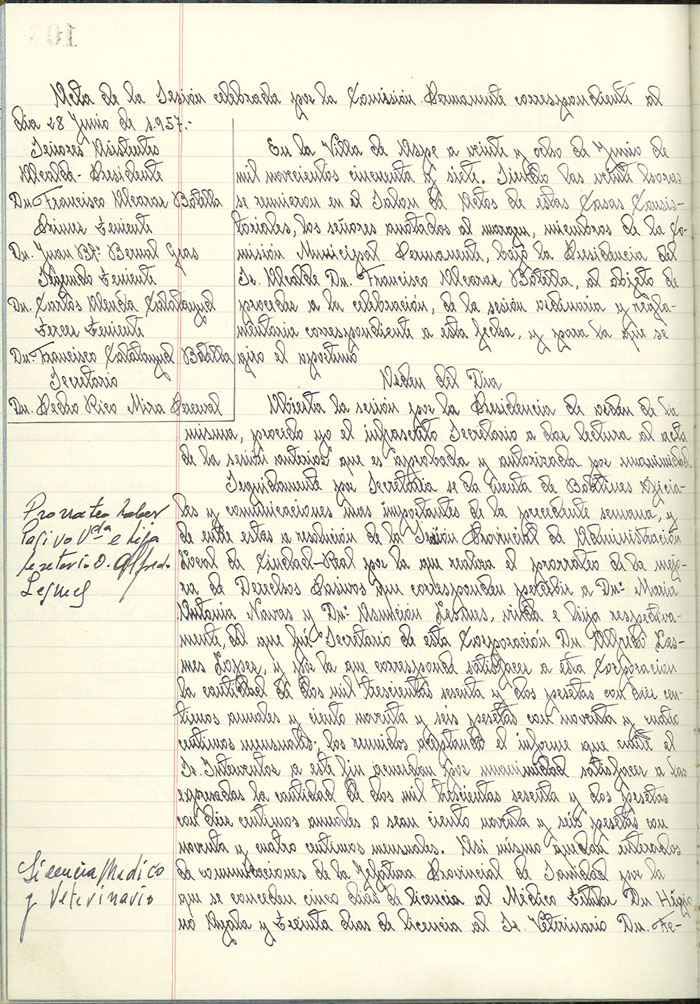 Acta de la Sesión celebrada por la Comisión Permanente correspondiente al
día 28 Junio de 1.957.-
Señores Asistentes
Alcalde-Presidente
Dn. Francisco Alcaraz Botella
Primer Teniente
Dn. Juan Bta. Bernal Gras
Segundo Teniente
Dn. Carlos Calatayud
Tercer Teniente
Dn. Francisco Calatayud Botella
Secretario
Dn. Pedro Rico Mira
En la Villa de Aspe a veinte y ocho de Junio de
mil novecientos cincuenta y siete. Siendo las veinte horas
se reunieron en el Salon de Actos de estas Casas Consis-
toriales, los señores anotados al margen, miembros de la Co-
misión Municipal Permanente, bajo la Presidencia del
Sr. Alcalde Dn. Francisco Alcaraz Botella, al objeto de
proceder a la celebración, de la sesión ordinaria y regla-
mentaria correspondiente a esta fecha, y para la que se
fijó el oportuno
Orden del Día
Abierta la sesión por la Presidencia de orden de la
misma, procedo yo el infrascrito Secretario a dar lectura al acta
de la sesión anterior que es aprobada y autorizada por unanimidad.
Seguidamente por Secretaria se da cuenta de Boletines Oficia-
les y comunicaciones mas importantes de la precedente semana, y
de entre estas a resolución de la Provincial de Administración
Local de Ciudad-Real por la que realiza el prorrateo de la mejo-
ra de Derechos Pasivos que corresponden percibir a Dña. Maria
Antonia Navas y Dña. Asunción Lesmes, viuda e hija respectiva-
mente, del que fué Secretario de esta Corporación Dn. Alfredo Les-
mes y por la que corresponde satisfacer a esta Corporación
la cantidad de dos mil trescientas sesenta y dos pesetas con diez cen-
timos anuales y ciento noventa y seis pesetas con noventa y cuatro
centimos mensuales; los reunidos aceptando el informe que emite el
Sr. Interventor a este fin acuerdan por unanimidad satisfacer a las
expresadas la cantidad de dos mil trescientas sesenta y dos pesetas
con diez centimos anuales o sean ciento noventa y seis pesetas con
noventa y cuatro centimos mensuales. Asi mismo quedan enterados
de comunicaciones de la Jefatura Provincial de Sanidad por la
que se conceden cinco días de licencia al Médico Titular Dn. Higi
no Ayala y treinta dias de licencia al Sr. Veterinario Dn. Fe-
Prorrateo haber
Pasivo Vda e hija
Secretario D. Alfredo
Lesmes
Licencia Medico
y Veterinario